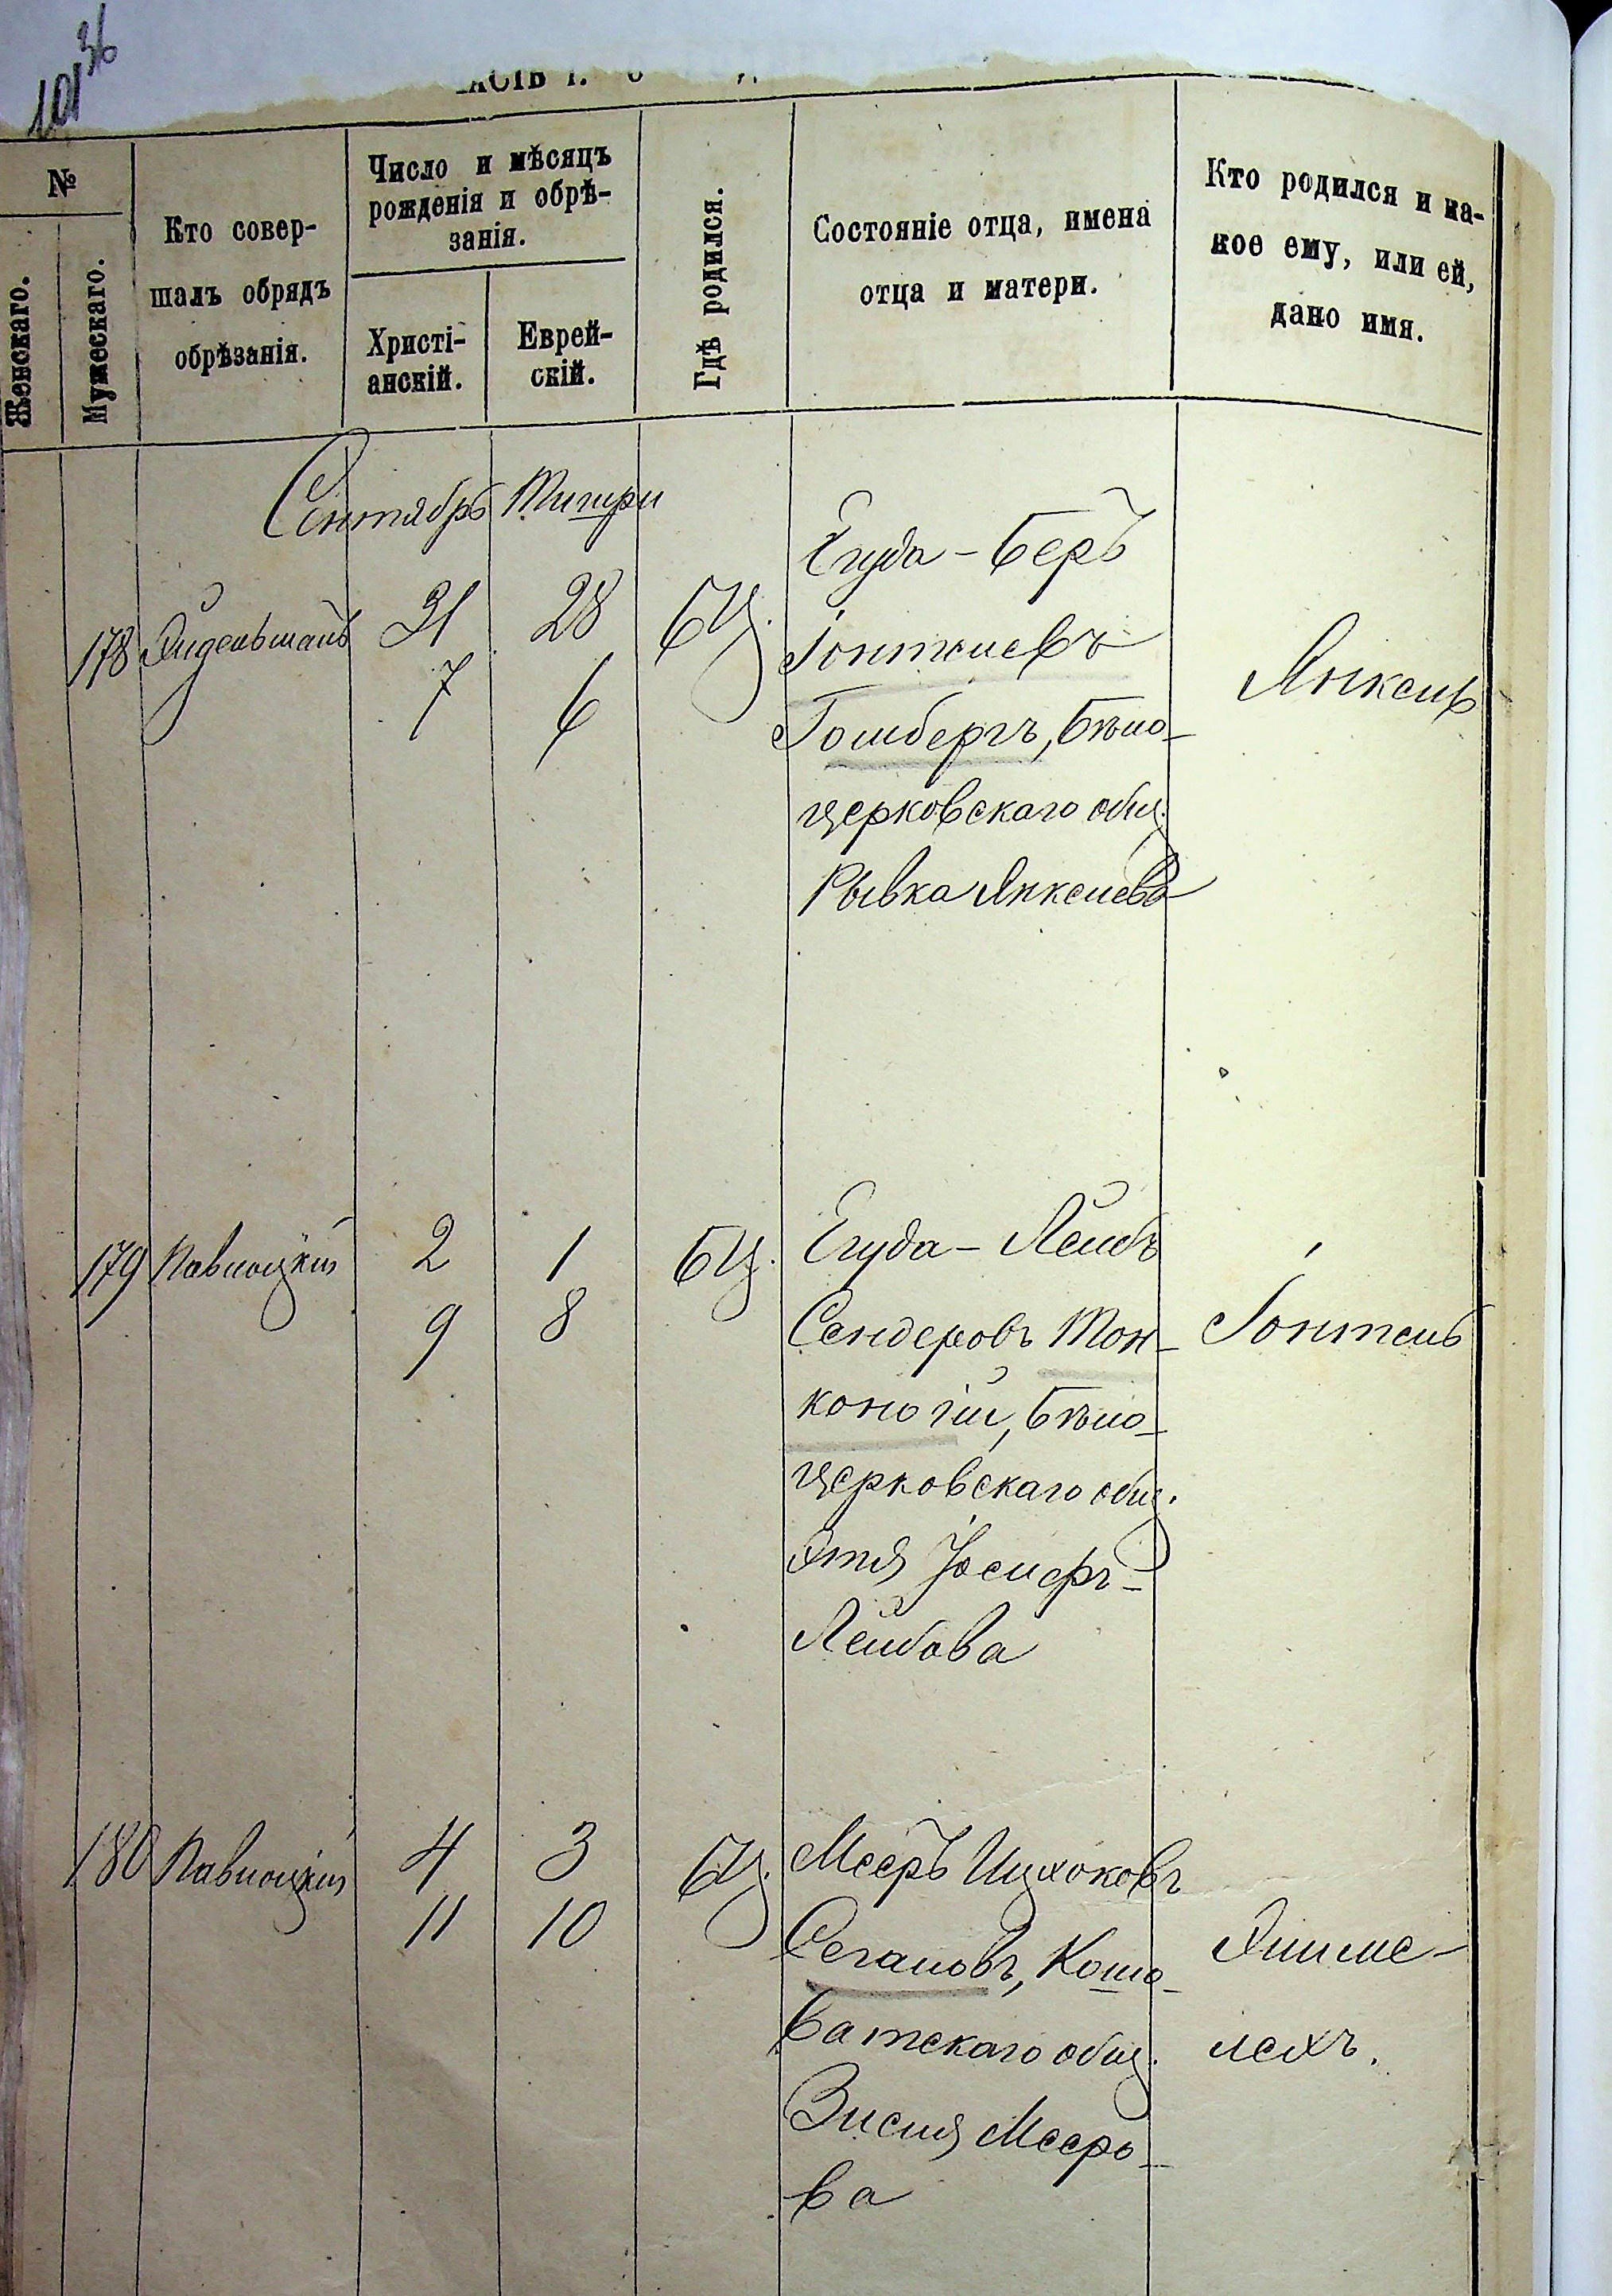 101 36
№
Женскаго.
Мужескаго.
Кто совер-
шалъ обрядъ
обрѣзанія.
Число и мѣсяцъ
рожденія и обрѣ-
занія.
Христі-
анскій.
Еврей-
скій.
Гдѣ родился.
Состояніе отца, имена
отца и матери.
Кто родился и ка-
кое ему, или ей,
дано имя.
Сентябрь Тишри
178
31 28
7 6
БЦ.
Егуда-Беръ
Іонтелевъ
Голдбергъ, Бѣло-
церковскаго общ.
Рывка Янкелева
Янкель
179 Павлоцкій 2 1
9 8
БЦ.
Егуда-Лейбъ
Сендеровъ Тон-
коногій, Бѣло-
церковскаго общ.
Этя Іосифъ-
Лейбова
Іонтель
180 Павлоцкій 4 3
11 10
БЦ.
Мееръ Ицхоковъ
Сегаловъ, Кошо-
ватскаго общ.
Зисля Мееро-
ва
Элиме-
лехъ.